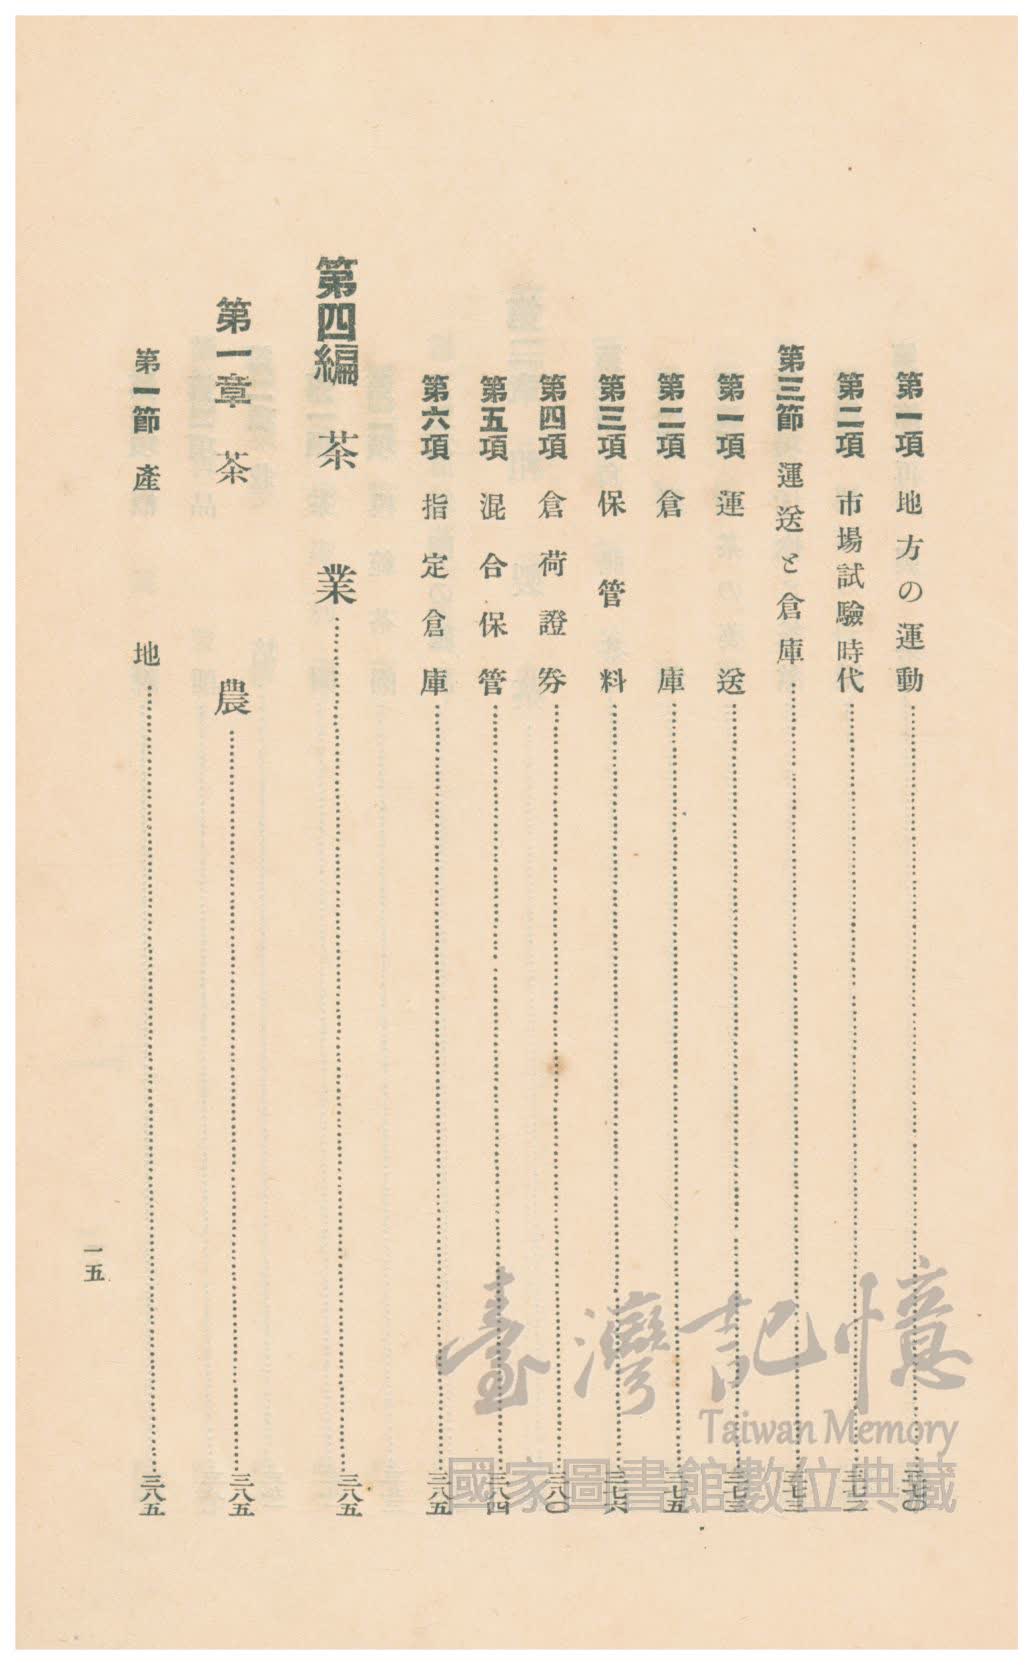 第一項 地方の運動……三七〇
第二項 市場試驗時代……三七二
第三節 運送と倉庫……三七三
第一項 運送……三七三
第二項 倉庫……三七五
第三項 保管料……三七六
第四項 倉荷證券……三八〇
第五項 混合保管……三八四
第六項 指定倉庫……三八五
第四編 茶業……三八五
第一章 茶農……三八五
第一節 產地……三八五
一五
臺灣記憶
Taiwan Memory
國家圖書館數位典藏